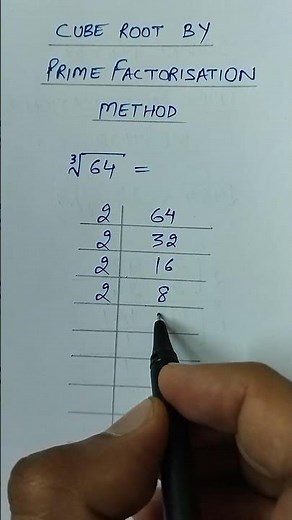 CUBE ROOT BY
PRIME FACTORISATION
METHOD
∛64 =
2 | 64
2 | 32
2 | 16
2 | 8